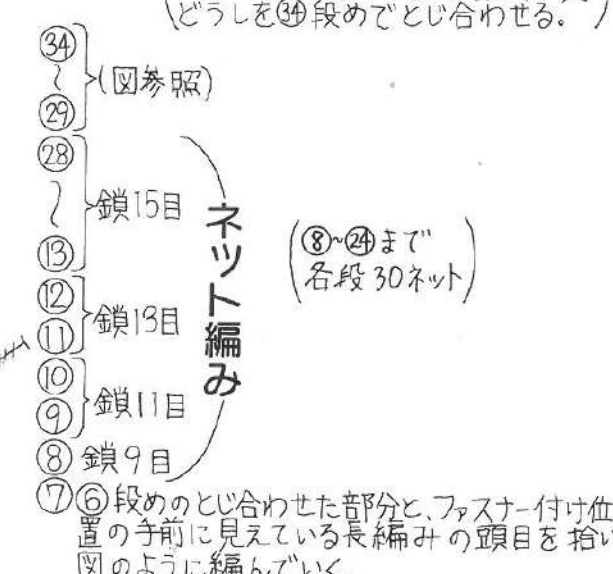 どうしを㉞段めでとじ合わせる。)
㉞
〜
㉙
(図参照)
㉘
〜
⑬
鎖15目
⑫
⑪
鎖13目
⑩
⑨
鎖11目
⑧ 鎖9目
ネット編み
(⑧~㉔まで
各段30ネット)
⑦ ⑥段めのとじ合わせた部分と、ファスナー付け位
置の手前に見えている長編みの頭目を拾い
図のように編んでいく。